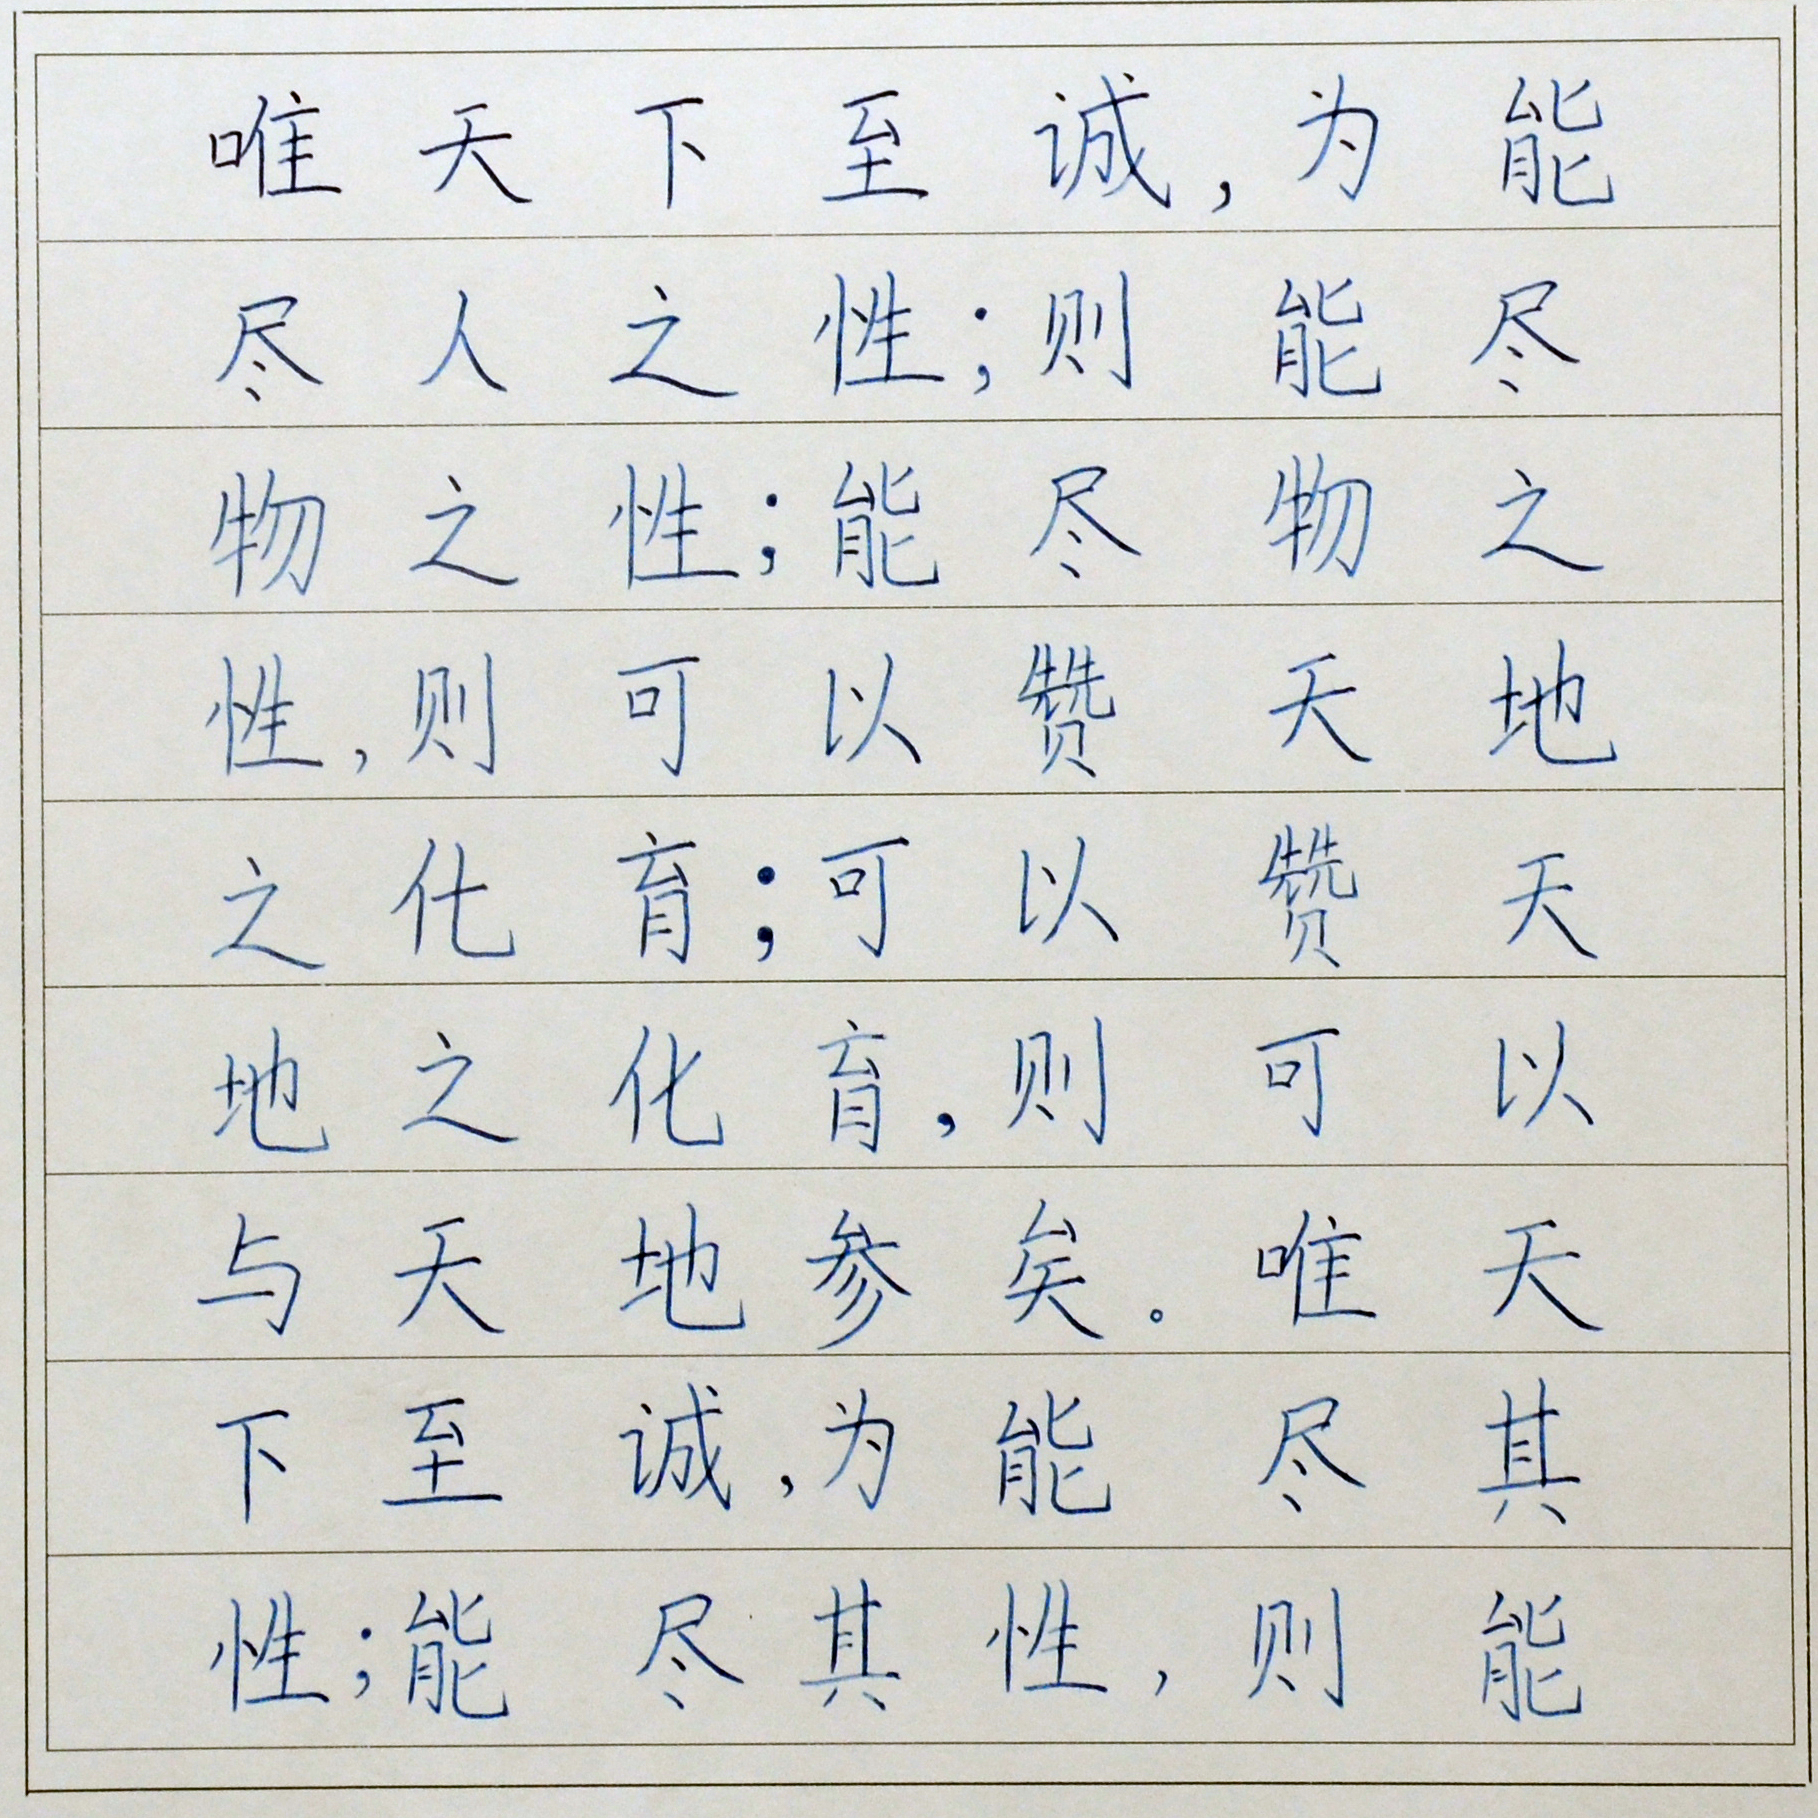 唯天下至诚,为能
尽人之性;则能尽
物之性;能尽物之
性,则可以赞天地
之化育;可以赞天
地之化育,则可以
与天地参矣。唯天
下至诚,为能尽其
性;能尽其性,则能